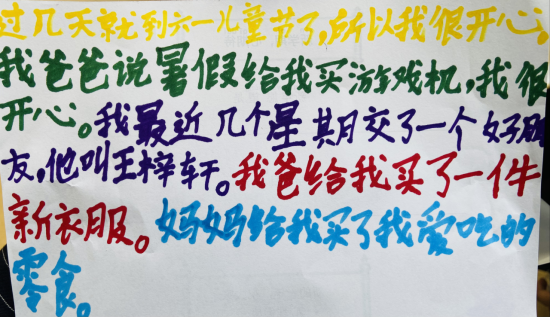 过几天就到六一儿童节了,所以我很开心。
我爸爸说暑假给我买游戏机,我很
开心。我最近几个星期交了一个好朋
友,他叫王梓轩。我爸给我买了一件
新衣服。妈妈给我买了我爱吃的
零食。